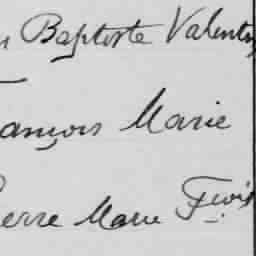 n Baptiste Valentin
ançois Marie
ierre Marie Fçois